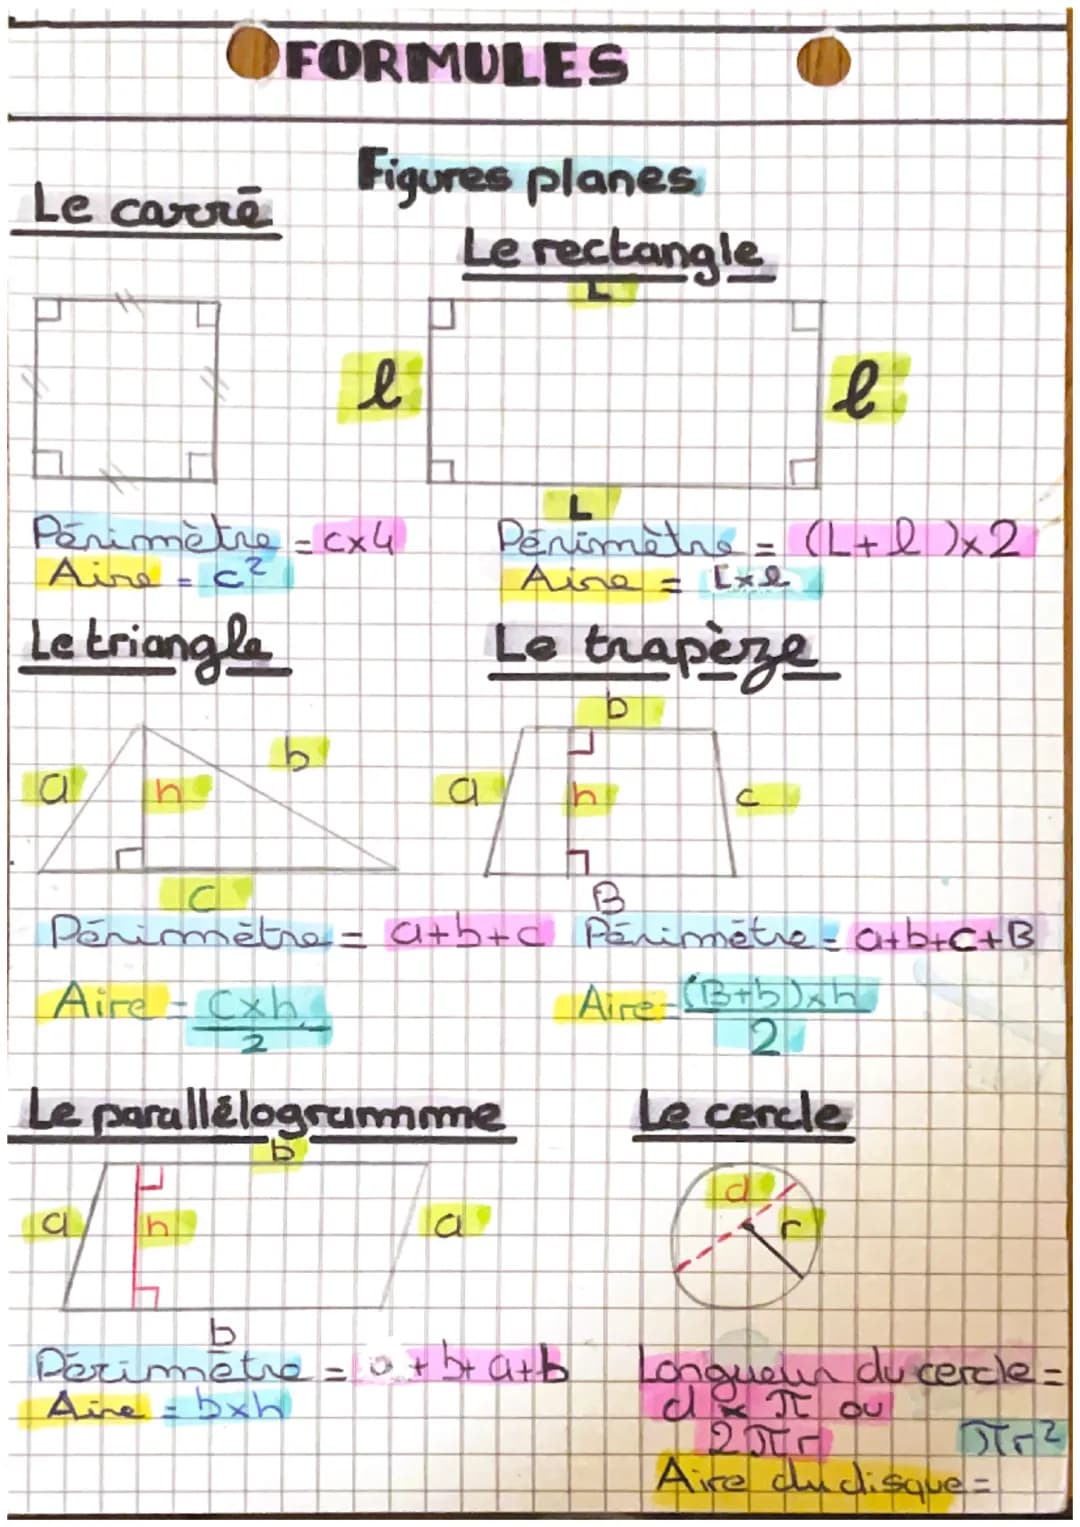 FORMULES
Figures planes
Le carré
Le rectangle
L
l
l
L
Périmètre = c×4
Aire = c²
Périmètre = (L+l)×2
Aire = L×l
Le triangle
Le trapèze
a
h
b
c
b
a
h
c
B
Périmètre = a+b+c
Périmètre = a+b+c+B
Aire = c×h
2
Aire = (B+b)×h
2
Le parallélogrammme
Le cercle
b
a
h
a
b
d
r
Périmètre = a+b+a+b
Aire = b×h
Longueur du cercle =
d × π ou
2πr
πr²
Aire du disque =